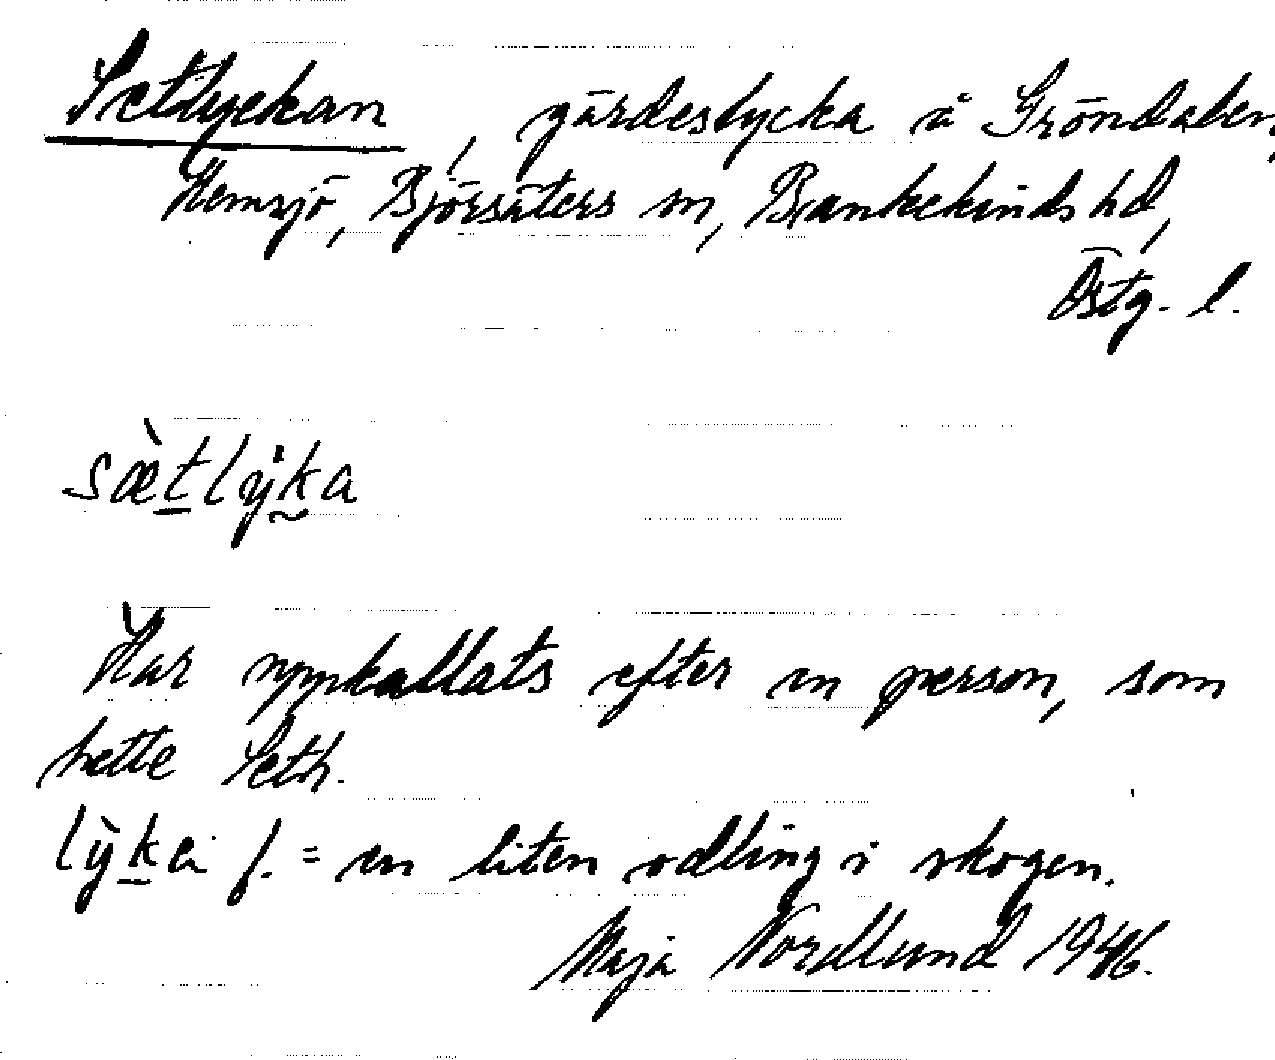 Setlyckan, gärdeslycka å Gröndalen,
Hemsjö, Björsäters sn, Bankekinds hd,
Östg. l.
sæ̀tlyka
Har uppkallats efter en person, som
hette Seth.
lỳka f. = en liten odling i skogen.
Maja Nordlund 1946.